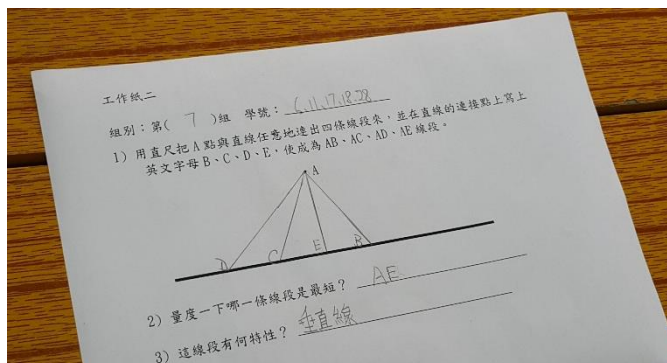 工作紙二
組別：第( 7 )組 學號：6,11,17,18,28
1) 用直尺把 A 點與直線任意地連出四條線段來，並在直線的連接點上寫上
英文字母 B、C、D、E，使成為 AB、AC、AD、AE 線段。
A
D C E B
2) 量度一下哪一條線段是最短？ AE
3) 這線段有何特性？ 垂直線